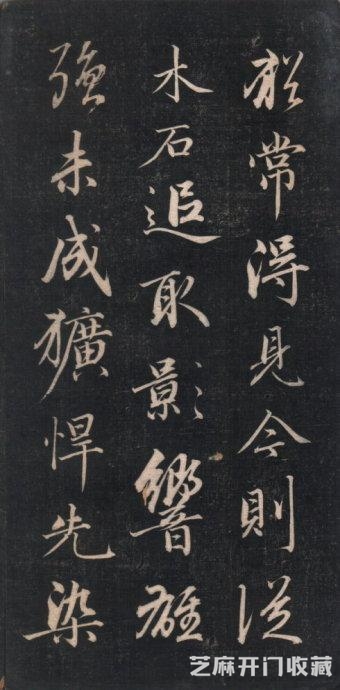 猶常得見今則從
木石追取影響雄
強未成獷悍先染
芝麻开门收藏